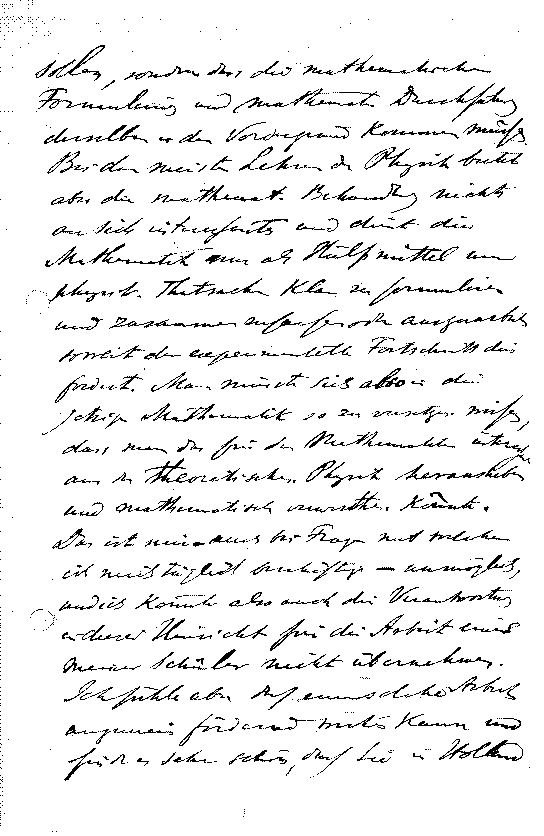 sollen, sondern dass die mathematischen
Formulierung und mathemat. Durchführung
derselben in den Vordergrund kommen müsse.
Bei den meisten Lehren der Physik bietet
aber die mathemat. Behandlung nichts
an sich interessantes und dient die
Mathematik nur als Hülfsmittel um
physik. Thatsachen klar zu formulieren
und zusammenzufassen oder
soweit der experimentelle Fortschritt dies
fordert. Man müsste sich also in die
jetzige Mathematik so zu versetzen wissen,
dass man das für den Mathematiker
aus der theoretischen Physik herausheben
und mathematisch verwerthen könnte.
Das ist mir auch bei Fragen mit welchen
ich mich täglich beschäftige — unmöglich,
und ich könnte also auch die Verantwortung
in dieser Hinsicht für die Arbeit eines
meiner Schüler nicht übernehmen.
Ich fühle aber dass eine solche Arbeit
ungemein fördernd wirken kann und
finde es sehr schön, dass Sie in Holland